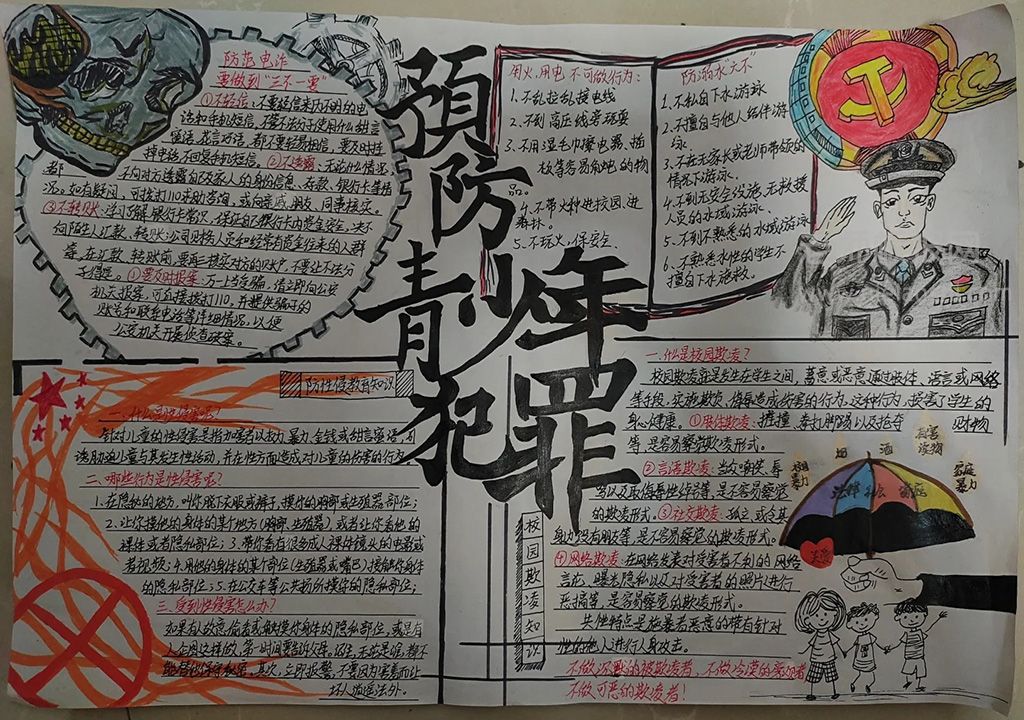 預防
青少年
犯罪
防范电诈
要做到“三不一要”
①不轻信：不要轻信来历不明的电
话和手机短信，不管不法分子使用什么甜言
蜜语、花言巧语，都不要轻易相信，要及时挂
掉电话，不回复手机短信。②不透露：无论什么情况，
都不向对方透露自己及家人的身份信息、存款、银行卡等情
况。如有疑问，可拨打110求助咨询，或向亲戚、朋友、同事核实。
③不转账：学习了解银行卡常识，保证自己银行卡内资金安全，决不
向陌生人汇款、转账；公司财务人员和经常有资金往来的人群
等，在汇款、转账前，要再三核实对方的账户，不要让不法分
子得逞。①要及时报案：万一上当受骗，请立即向公安
机关报案，可直接拨打110，并提供骗子的
账号和联系电话等详细情况，以便
公安机关开展侦查破案。
用火，用电 不可做行为：
1、不乱拉乱接电线
2、不到高压线旁玩耍
3、不用湿毛巾擦电器、插
板等容易触电的物
品。
4、不带火种进校园、进
森林。
5、不玩火，保安全、
防溺水“六不”
1、不私自下水游泳
2、不擅自与他人结伴游
泳、
3、不在无家长或老师带领的
情况下游泳、
4、不到无安全设施、无救援
人员的水域游泳、
5、不到不熟悉的水域游泳
6、不熟悉水性的学生不
擅自下水施救、
防性侵教育知识
一、什么是性侵害呢？
针对儿童的性侵害是指加害者以权力、暴力、金钱或甜言蜜语，引
诱胁迫儿童与其发生性活动，并在性方面造成对儿童的伤害的行为。
二、哪些行为是性侵害呢？
1、在隐秘的地方，叫你脱下衣服或裤子，摸你的胸部或生殖器部位；
2、让你摸他的身体的某个地方（胸部、生殖器）或者让你看他的
裸体或者隐私部位；3、带你看有很多成人裸体镜头的电影或
者视频；4、用他的身体的某个部位（生殖器或嘴巴）接触你身体
的隐私部位；5、在公交车等公共场所摸你的隐私部位；
三、受到性侵害怎么办？
如果有人故意偷看或触摸你身体的隐私部位，或是有
人企图这样做，第一时间要告诉父母。记住，无论是谁，都不
能替他保守秘密，其次，立即报警，不要因为害羞而让
坏人逍遥法外。
校园欺凌知识
一、什么是校园欺凌？
校园欺凌就是发生在学生之间，蓄意或恶意通过肢体、语言或网络
等手段，实施欺负、侮辱造成伤害的行为。这种行为，损害了学生的
身心健康。①肢体欺凌：推撞、拳打脚踢以及抢夺财物
等，是容易察觉欺凌形式。
②言语欺凌：当众嘲笑、辱
骂以及取侮辱性绰号等，是不容易察觉
的欺凌形式。③社交欺凌：孤立或令其
身边没有朋友等，是不容易察觉的欺凌形式。
④网络欺凌：在网络发表对受害者不利的网络
言论、曝光隐私以及对受害者的照片进行
恶搞等，是容易察觉的欺凌形式。
共性特点是施暴者恶意的带有针对
性的他人进行人身攻击。
不做沉默的被欺凌者，不做冷漠的旁观者
不做可恶的欺凌者！
烟
酒
有害
读物
家庭
暴力
法律 社会 家庭
关爱